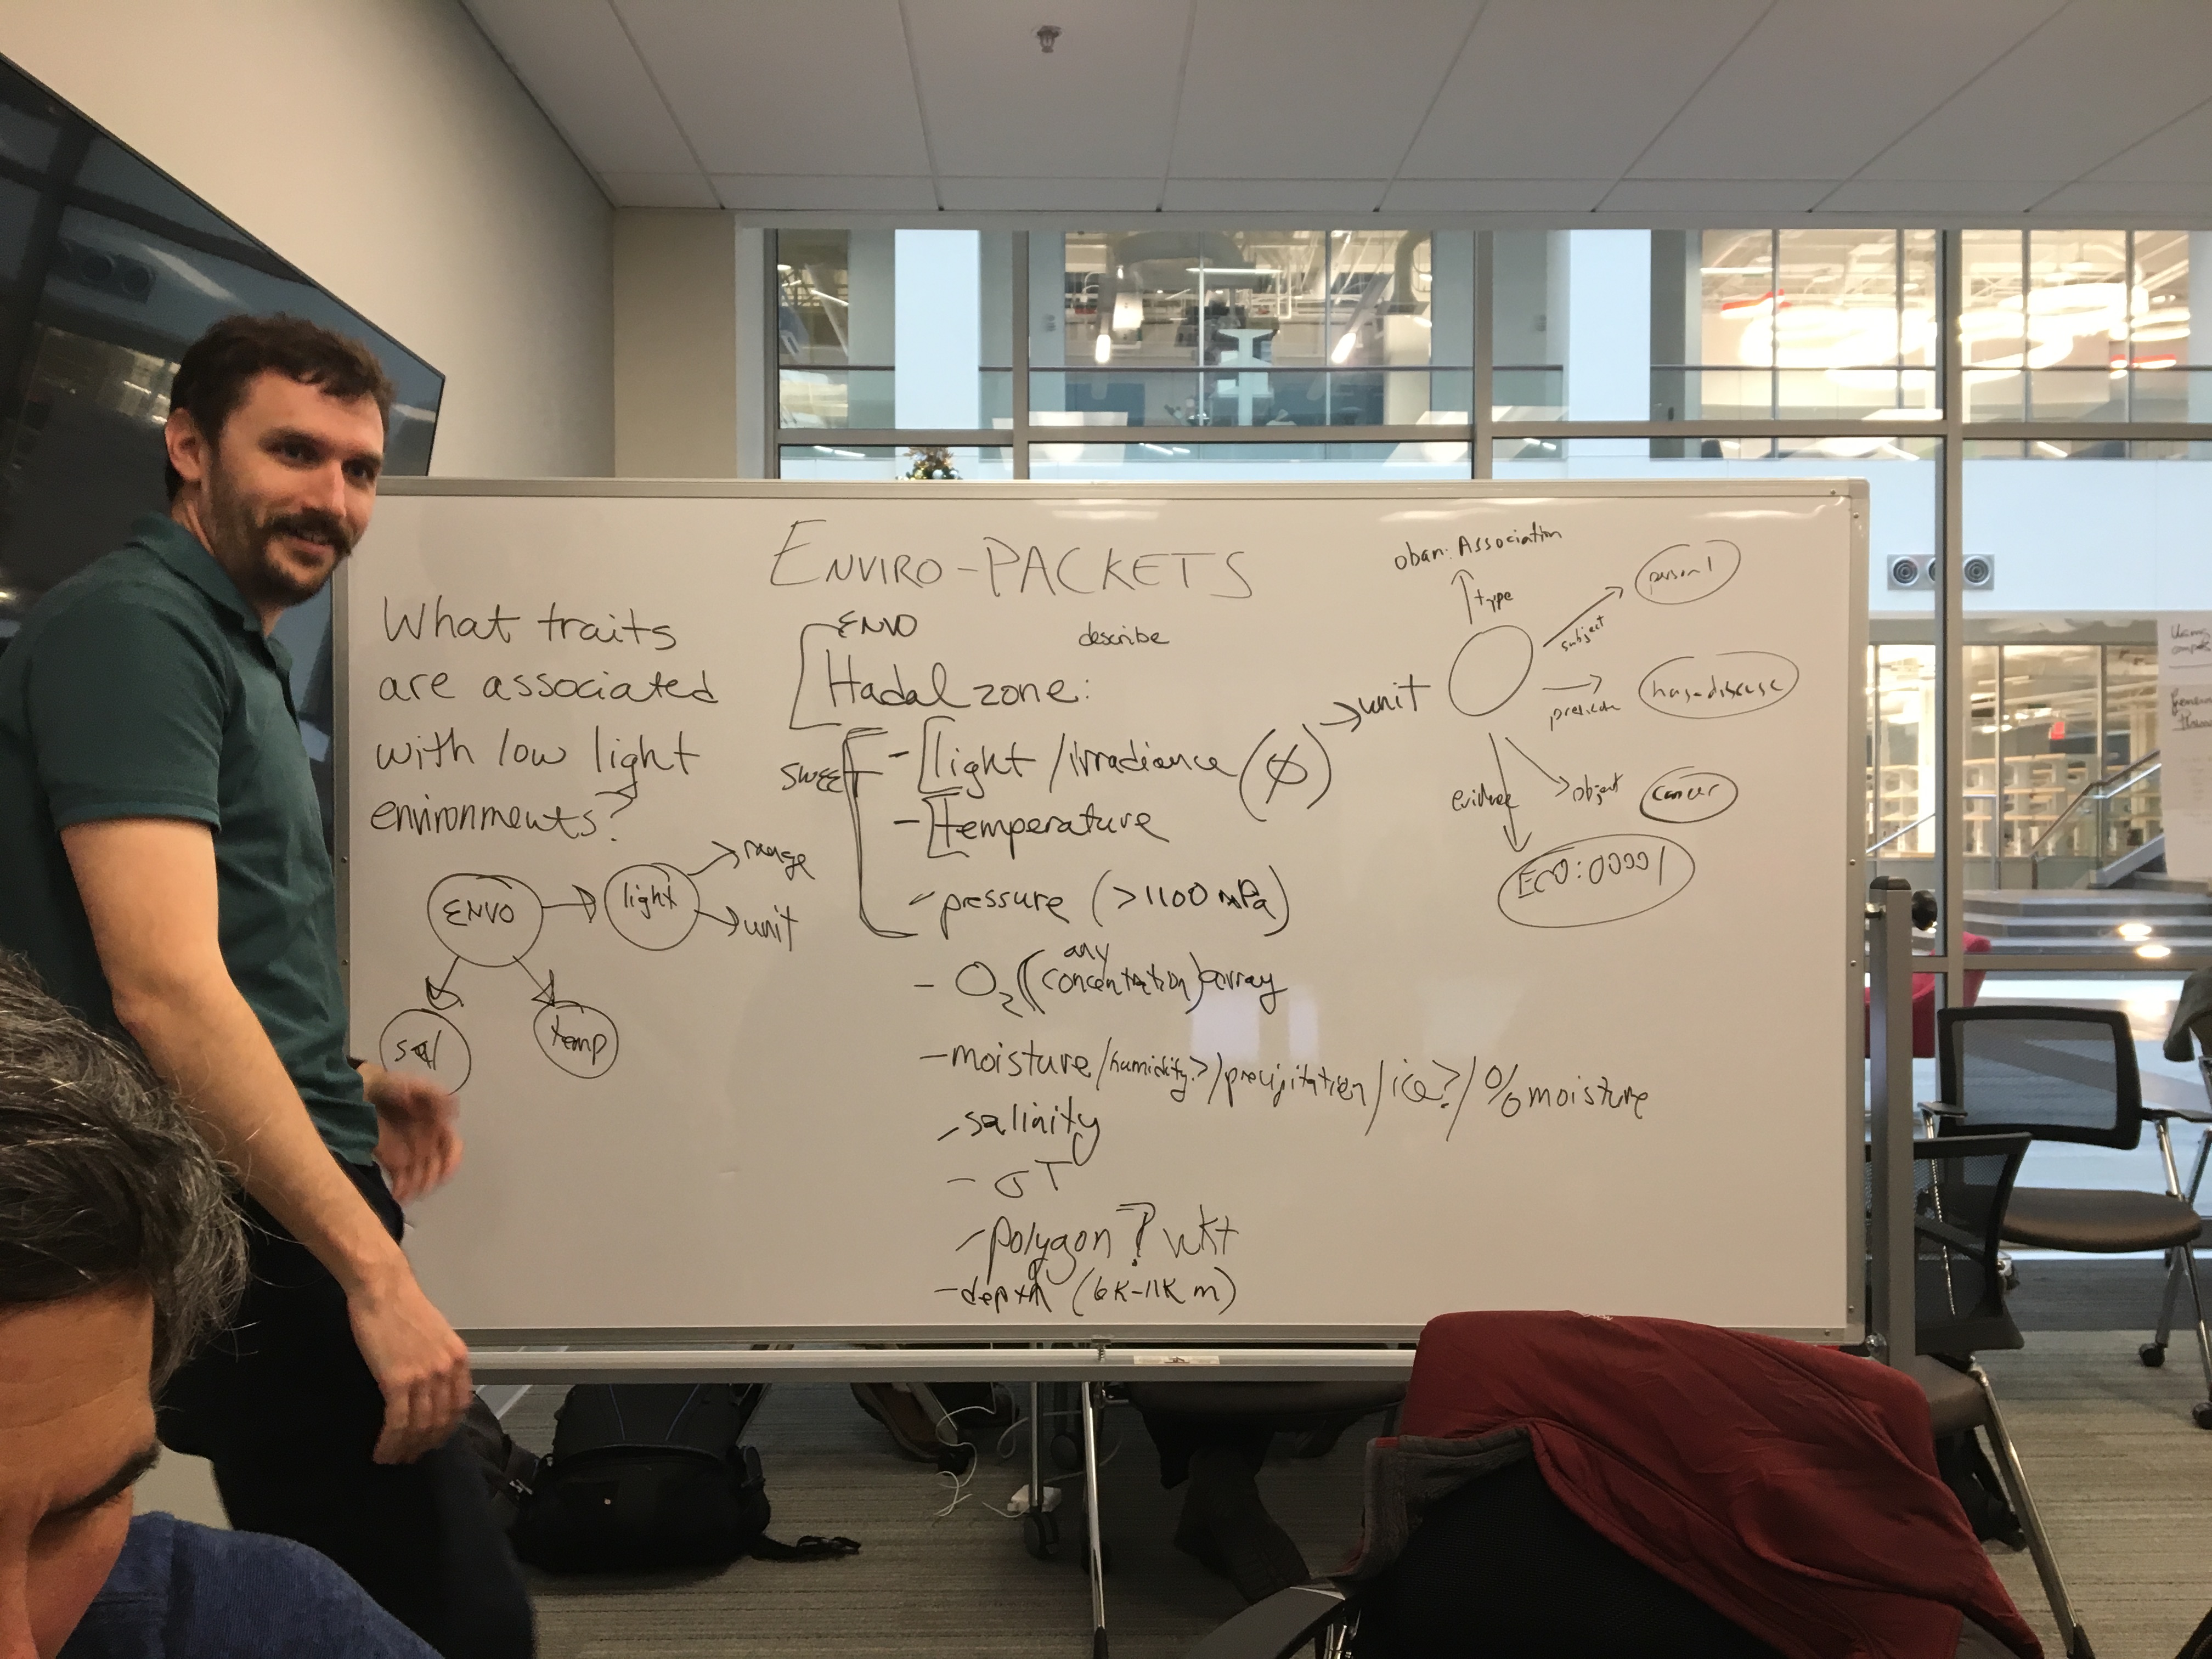 ENVIRO-PACKETS
What traits
are associated
with low light
environments?
ENVO
light
range
unit
sal
temp
ENVO
describe
Hadal zone:
SWEET
- light/irradiance (∅) → unit
- temperature
- pressure (>1100 mPa)
any
- O₂ ((concentration) array
- moisture/humidity?/precipitation/ice?/% moisture
- salinity
- σT
- polygon? wkt
- depth (6K-11K m)
oban: Association
type
subject
person 1
has-disease
object
cancer
evidence
ECO:00001